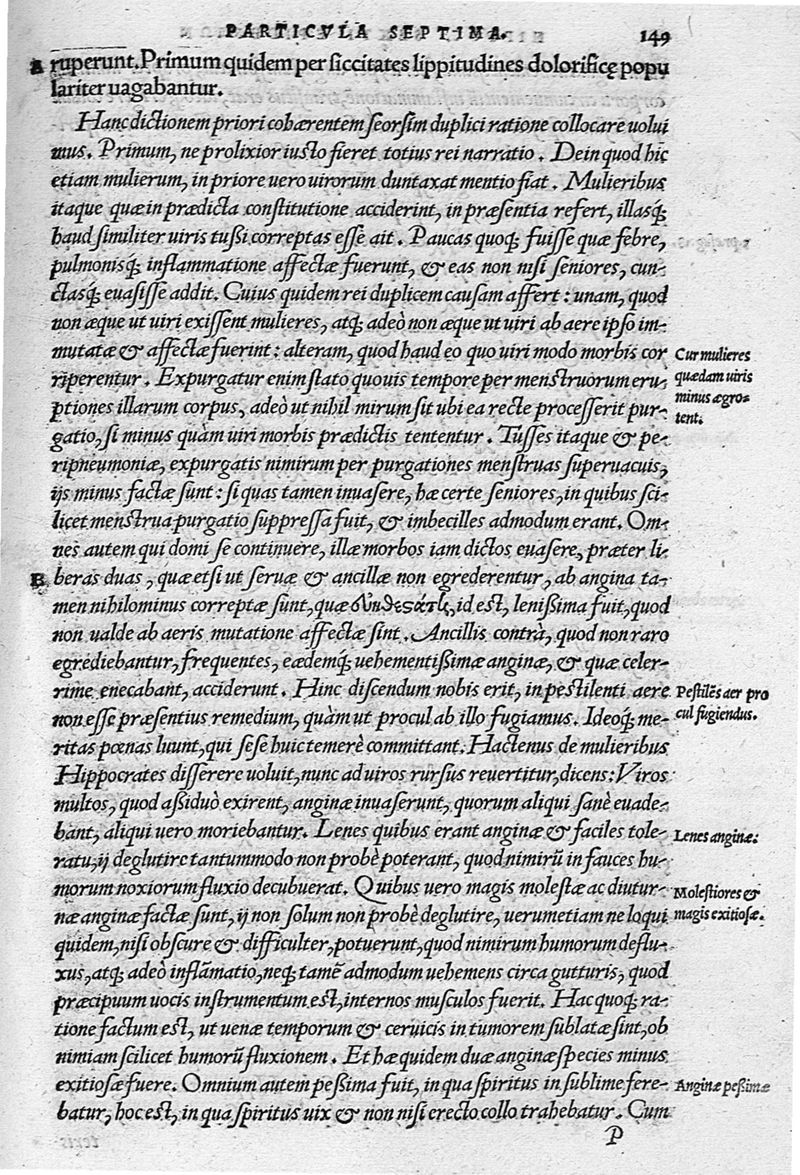 PARTICVLA SEPTIMA. 149
A ruperunt. Primum quidem per siccitates lippitudines dolorificę popu
lariter uagabantur.
Hanc dictionem priori cohærentem seorsim duplici ratione collocare uolui
mus. Primum, ne prolixior iusto fieret totius rei narratio. Dein quod hic
etiam mulierum, in priore uero uirorum duntaxat mentio fiat. Mulieribus
itaque quæ in prædicta constitutione acciderint, in præsentia refert, illasq́;
haud similiter uiris tußi correptas esse ait. Paucas quoq; fuisse quæ febre,
pulmonisq́; inflammatione affectæ fuerunt, & eas non nisi seniores, cun-
ctasq́; euasisse addit. Cuius quidem rei duplicem causam affert: unam, quod
non æque ut uiri exissent mulieres, atq; adeò non æque ut uiri ab aere ipso im-
mutatæ & affectæ fuerint: alteram, quod haud eo quo uiri modo morbis cor
riperentur. Expurgatur enim stato quouis tempore per menstruorum eru-
ptiones illarum corpus, adeò ut nihil mirum sit ubi ea recte processerit pur-
gatio, si minus quàm uiri morbis prædictis tententur. Tusses itaque & pe-
ripneumoniæ, expurgatis nimirum per purgationes menstruas superuacuis,
ijs minus factæ sunt: si quas tamen inuasere, hæ certe seniores, in quibus sci-
licet menstrua purgatio suppressa fuit, & imbecilles admodum erant. Om-
nes autem qui domi se continuere, illæ morbos iam dictos euasere, præter li-
B beras duas, quæ etsi ut seruæ & ancillæ non egrederentur, ab angina ta-
men nihilominus correptæ sunt, quæ id est, lenißima fuit, quod
non ualde ab aeris mutatione affectæ sint. Ancillis contrà, quod non raro
egrediebantur, frequentes, eædemq́; uehementißimæ anginæ, & quæ celer-
rime enecabant, acciderunt. Hinc discendum nobis erit, in pestilenti aere
non esse præsentius remedium, quàm ut procul ab illo fugiamus. Ideoq́; me-
ritas pœnas luunt, qui sese huic temerè committant. Hactenus de mulieribus
Hippocrates disserere uoluit, nunc ad uiros rursus reuertitur, dicens: Viros
multos, quod aßiduò exirent, anginæ inuaserunt, quorum aliqui sanè euade-
bant, aliqui uero moriebantur. Lenes quibus erant anginæ & faciles tole-
ratu, ij deglutire tantummodo non probè poterant, quod nimirũ in fauces hu-
morum noxiorum fluxio decubuerat. Quibus uero magis molestæ ac diutur-
næ anginæ factæ sunt, ij non solum non probè deglutire, uerumetiam ne loqui
quidem, nisi obscure & difficulter, potuerunt, quod nimirum humorum deflu-
xus, atq; adeò inflãmatio, neq; tamẽ admodum uehemens circa gutturis, quod
præcipuum uocis instrumentum est, internos musculos fuerit. Hac quoq; ra-
tione factum est, ut uenæ temporum & ceruicis in tumorem sublatæ sint, ob
nimiam scilicet humorũ fluxionem. Et hæ quidem duæ anginæ species minus
exitiosæ fuere. Omnium autem peßima fuit, in qua spiritus in sublime fere-
batur, hoc est, in qua spiritus uix & non nisi erecto collo trahebatur. Cum
P
Cur mulieres
quædam uiris
minus ægro-
tent.
Pestilẽs aer pro
cul fugiendus.
Lenes anginæ:
Molestiores &
magis exitiosæ.
Anginæ peßimæ